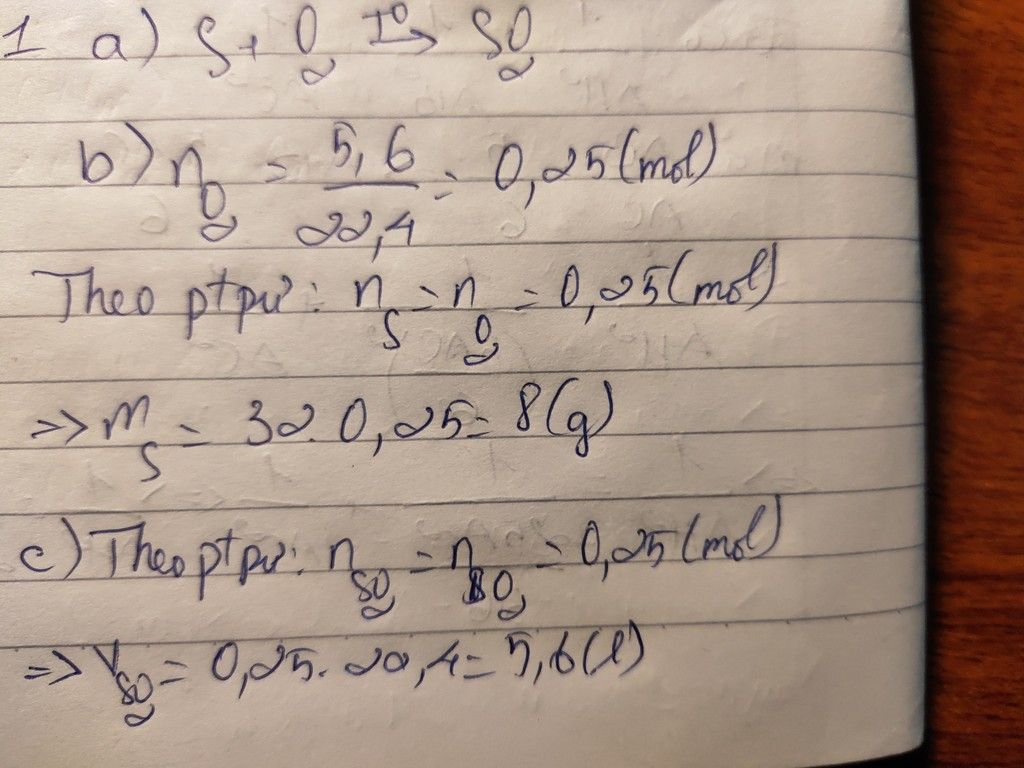 1 a) S + O₂ T°→ SO₂
b) n O₂ = 5,6 / 22,4 = 0,25 (mol)
Theo ptpư: n S = n O₂ = 0,25 (mol)
=> m S = 32. 0,25 = 8 (g)
c) Theo ptpư: n SO₂ = n O₂ = 0,25 (mol)
=> V SO₂ = 0,25. 22,4 = 5,6 (l)